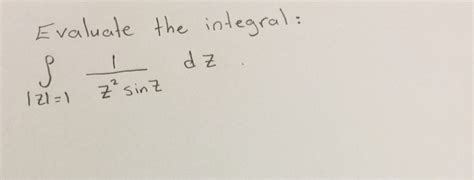 Evaluate the integral:
∮ 1 dz.
|z|=1 z² sin z